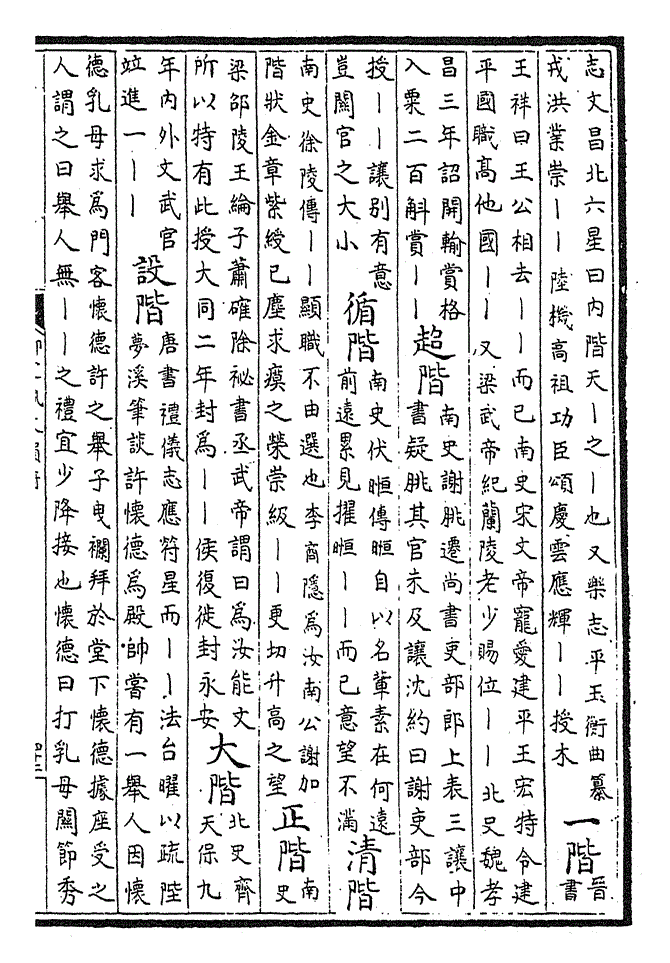 志文昌北六星曰内階天丨之丨也又樂志平玉衡曲纂
戎洪業崇丨丨陸機高祖功臣頌慶雲應輝丨丨授木
一階
晉
書
王祥曰王公相去丨丨而已南史宋文帝寵愛建平王宏特令建
平國職高他國丨丨又梁武帝紀蘭陵老少賜位丨丨北史魏孝
昌三年詔開輸賞格
入粟二百斛賞丨丨
超階
南史謝朓遷尚書吏部郎上表三讓中
書疑朓其官未及讓沈約曰謝吏部今
授丨丨讓别有意
豈關官之大小
循階
南史伏暅傳暅自以名軰素在何遠
前遠累見擢暅丨丨而已意望不滿
清階
南史徐陵傳丨丨顯職不由選也李商隱為汝南公謝加
階狀金章紫綬已塵求瘼之榮崇級丨丨更切升高之望
正階
南
史
梁邵陵王綸子蕭確除祕書丞武帝謂曰為汝能文
所以特有此授大同二年封為丨丨侯復徙封永安
大階
北史齊
天保九
年内外文武官
竝進一丨丨
設階
唐書禮儀志應符星而丨丨法台曜以疏陛
夢溪筆談許懷德為殿帥嘗有一舉人因懷
德乳母求為門客懷德許之舉子曳襴拜於堂下懷德據座受之
人謂之曰舉人無丨丨之禮宜少降接也懷德曰打乳母關節秀